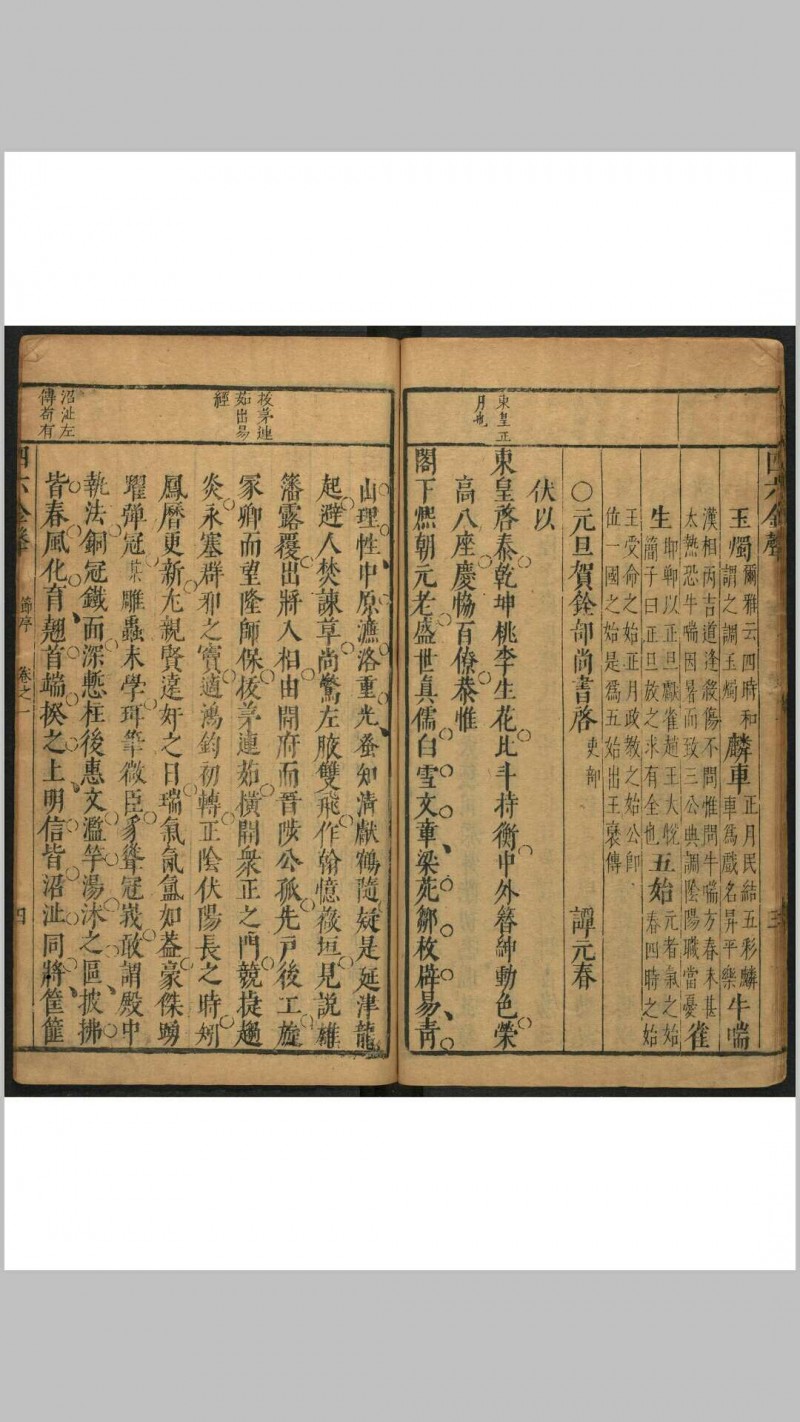 玉燭爾雅云四時和謂之調玉燭麟車正月民結五彩麟車爲戲名昇平樂牛喘
漢相丙吉道逢殺傷不問惟問牛喘方春未甚太熱恐牛喘因暑而致三公典調陰陽職當憂雀
生邯鄲以正旦獻雀趙王大悅簡子曰正旦放之求有全也五始元者氣之始春四時之始
王受命之始正月政教之始公即位一國之始是爲五始出王褒傳
○元旦賀銓部尚書啓吏部 譚元春
伏以
東皇正月也
東皇啓泰乾坤桃李生花北斗持衡中外簪紳動色榮
高八座慶惕百僚恭惟
閣下熈朝元老盛世真儒白雪文章梁苑鄒枚辟易青
山理性中原濂洛重光蚤知清獻鶴隨疑是延津龍
起避人焚諫草尚驚左腋雙飛作翰憶薇垣見說雄
籓露覆出將入相由開府而晉陟公孤先戸後工旋
拔茅連茹出易經
冢卿而望隆師保拔茅連茹橫開衆正之門競捷趨
炎永塞群邪之竇適鴻鈞初轉正陰伏陽長之時矧
鳳曆更新尤親賢達奸之日瑞氣氤氳如葢豪傑踴
躍彈冠某雕蟲末學珥筆微臣豸聳冠峩敢謂殿中
執法銅冠鐵面深慙柱後惠文濫竽湯沐之區披拂
沼沚左傳荀有
皆春風化育翹首端揆之上明信皆沼沚同將筐筐
四六全聲 節序 卷之一 四
四六全聲 三